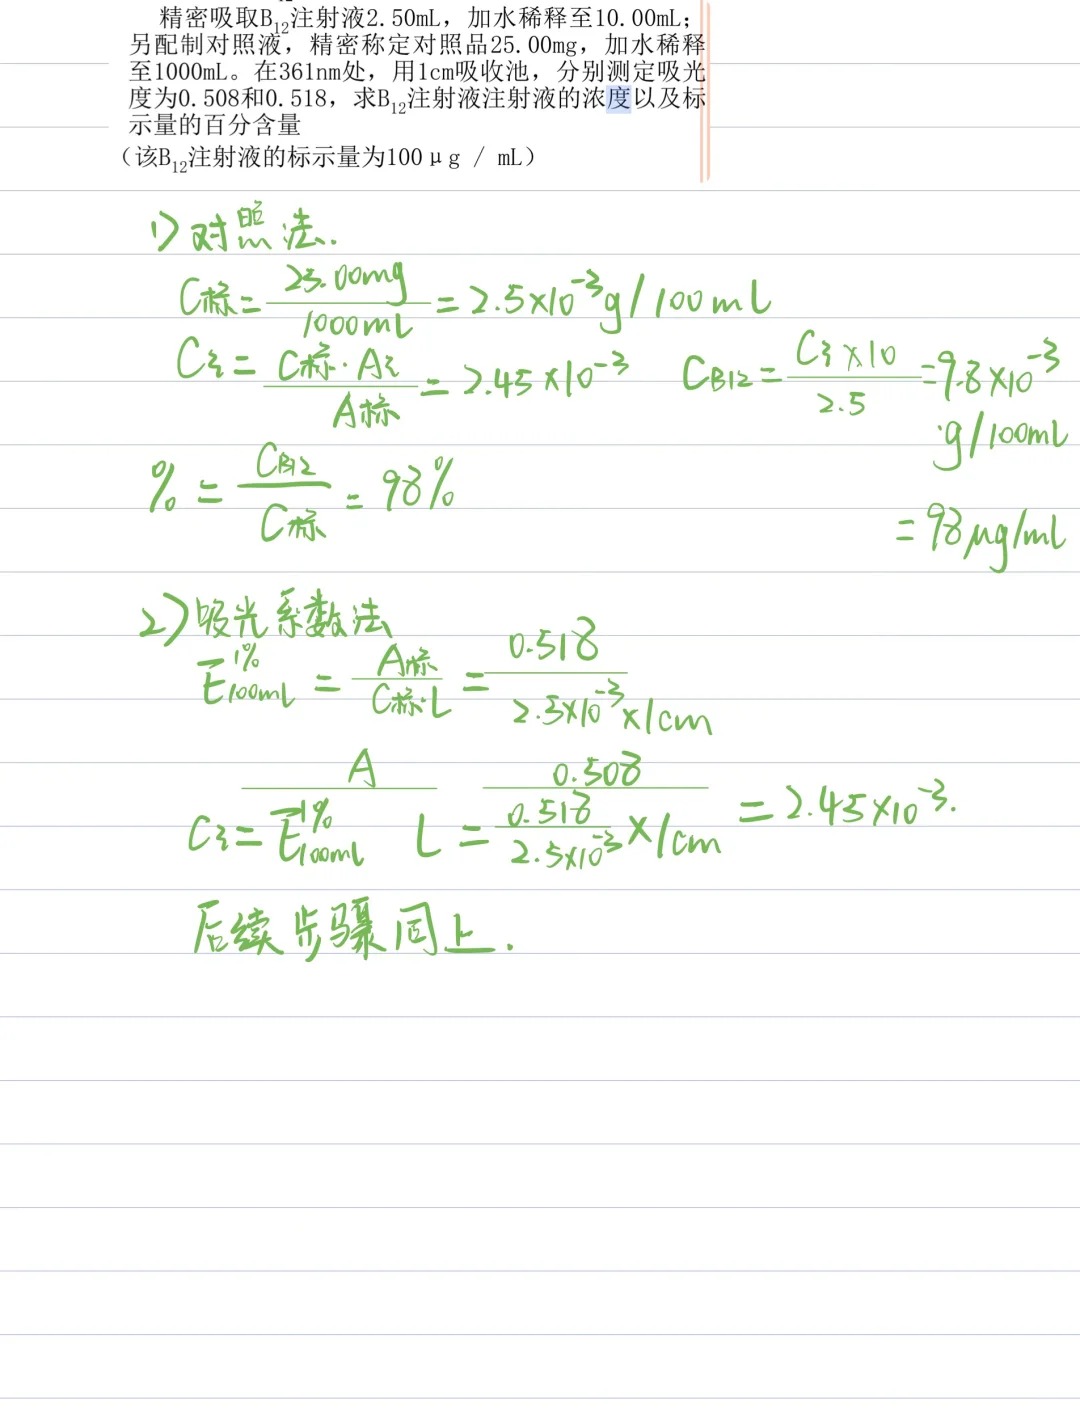 精密吸取B12注射液2.50mL，加水稀释至10.00mL；
另配制对照液，精密称定对照品25.00mg，加水稀释
至1000mL。在361nm处，用1cm吸收池，分别测定吸光
度为0.508和0.518，求B12注射液注射液的浓度以及标
示量的百分含量
（该B12注射液的标示量为100μg / mL）
1) 对照法.
C标 = 25.00mg / 1000mL = 2.5×10^-3 g/100mL
C对 = C标·A对 / A标 = 2.45×10^-3 CB12 = C对×10 / 2.5 = 9.8×10^-3
g/100mL
% = CB12 / C标 = 98%
= 98μg/mL
2) 吸光系数法
E^1%_100mL = A标 / C标·L = 0.518 / 2.5×10^-3×1cm
C对 = A / E^1%_100mL L = 0.508 / (0.518 / 2.5×10^-3)×1cm = 2.45×10^-3.
后续步骤同上.